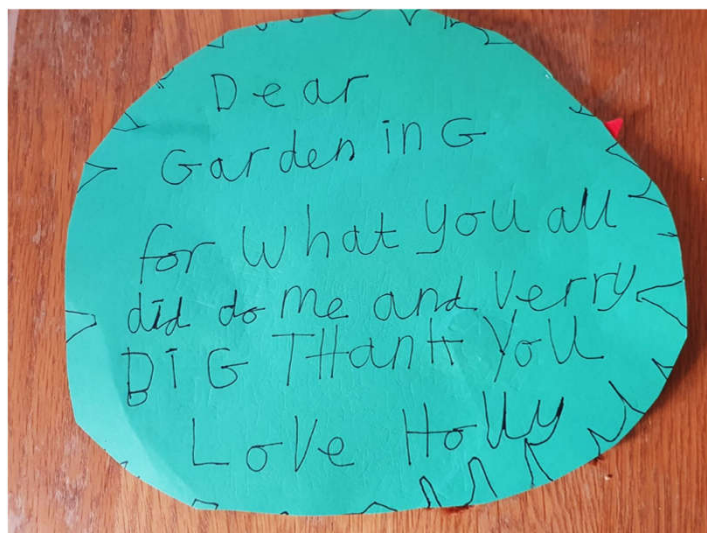 Dear
Garden in G
for what you all
did do me and verry
BIG THank You
Love Holly